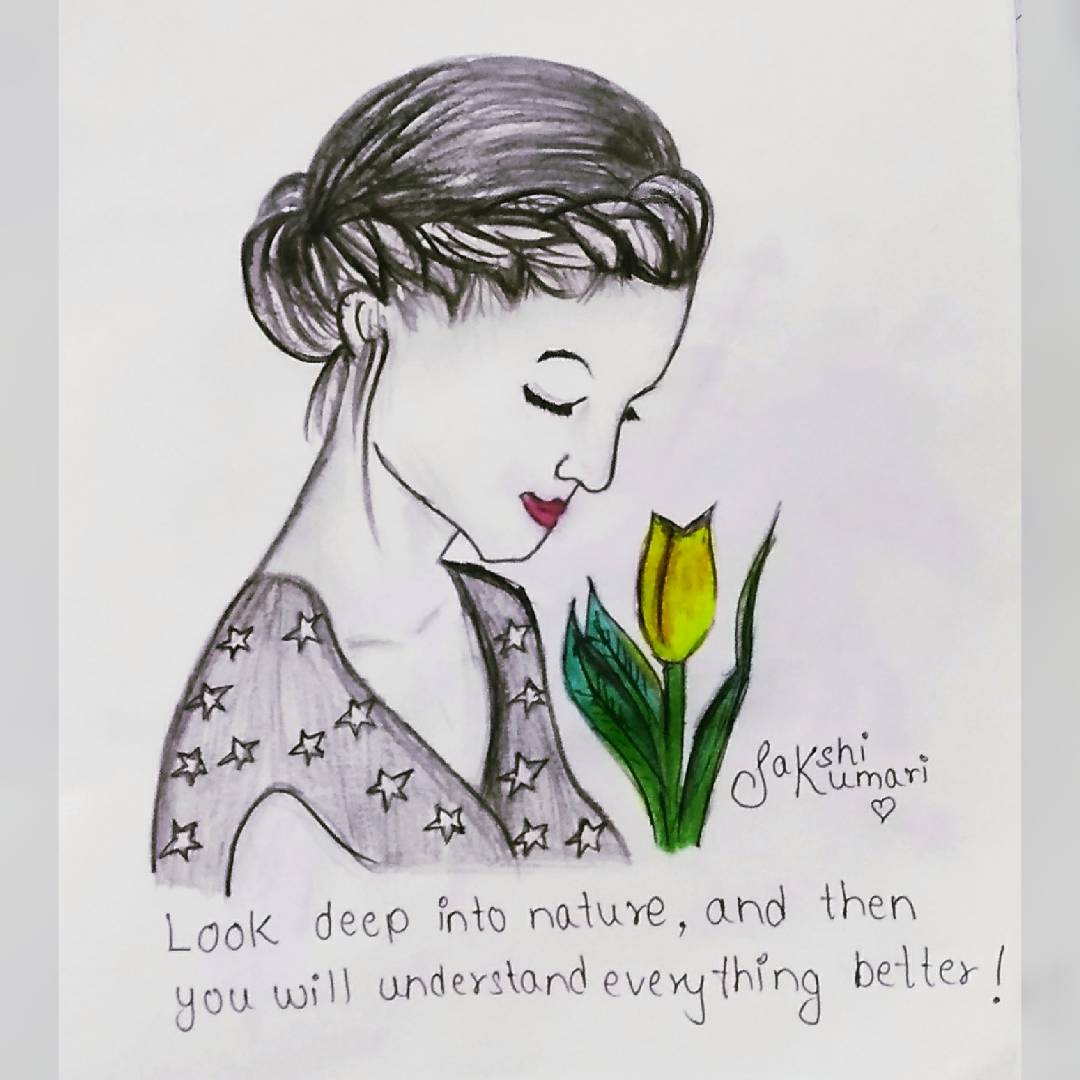 Sakshi
Kumari
Look deep into nature, and then
you will understand everything better!